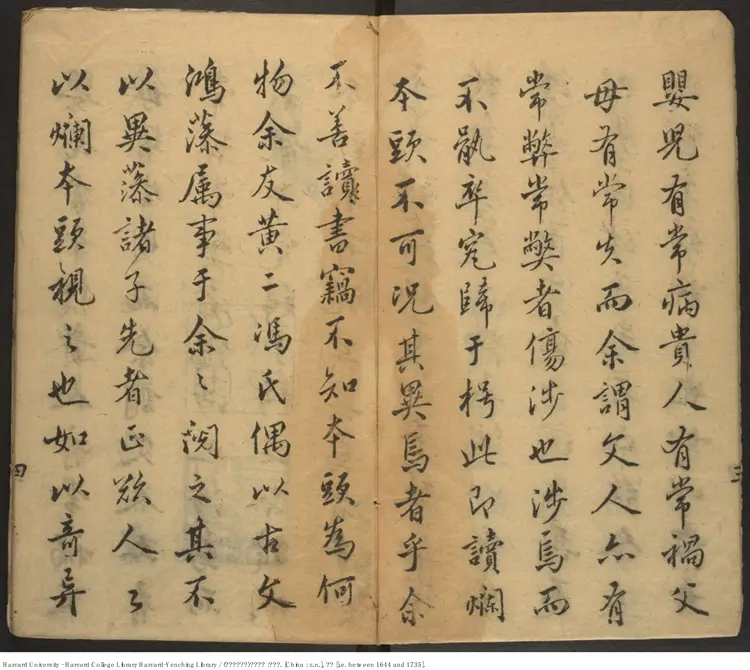 嬰児有常病貴人有常禍父
母有常失而余謂文人亦有
常弊常獘者傷涉也涉焉而
不孰卒究歸于枵此即讀爛
本頭不可况其異焉者乎余
不善讀書竊不知本頭為何
物余友黄二馮氏偶以古文
鴻藻属事于余〻閱之其不
以異藻諸子先者正欲人〻
以爛本頭視之也如以奇弃
三
四
Harvard University - Harvard College Library Harvard-Yenching Library / (???????)???? :???. [China : s.n.], ?? [i.e. between 1644 and 1735].